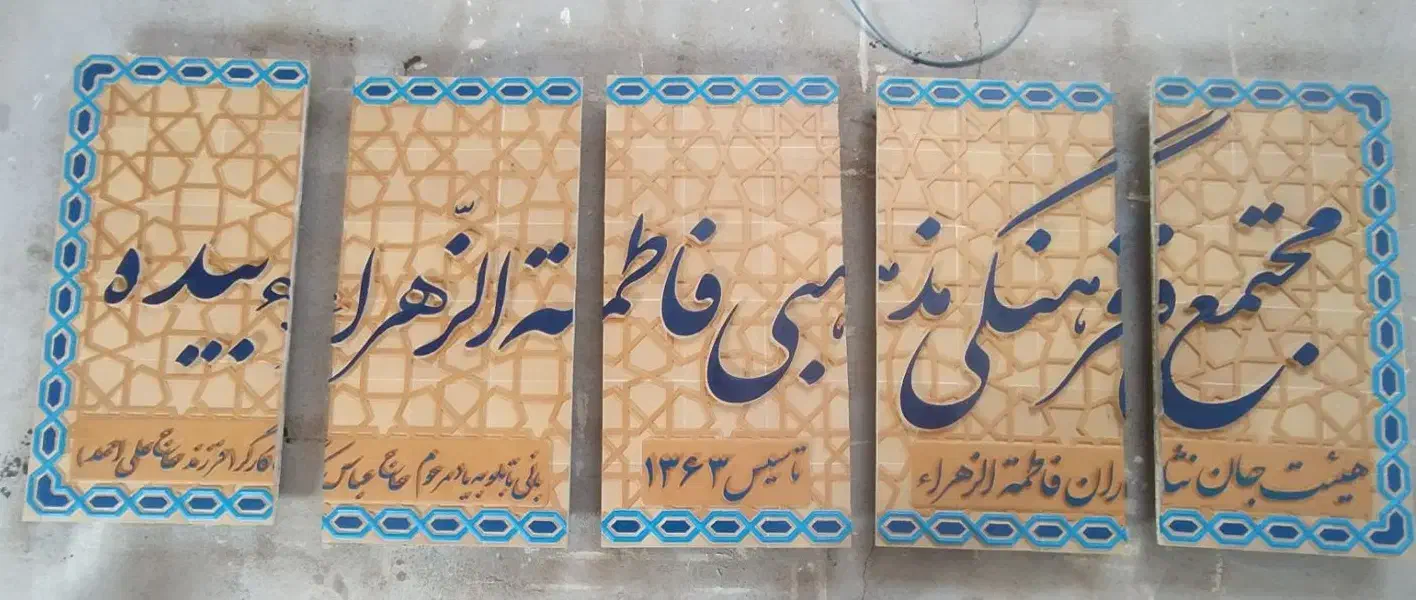 مجتمع فرهنگی مذهبی فاطمة الزّهراء بیده
هیئت جان نثاران فاطمة الزهراء تاسیس ۱۳۶۳ بانی تابلو به یاد مرحوم حاج عباس کارگر (فرزند حاج علی احمد)